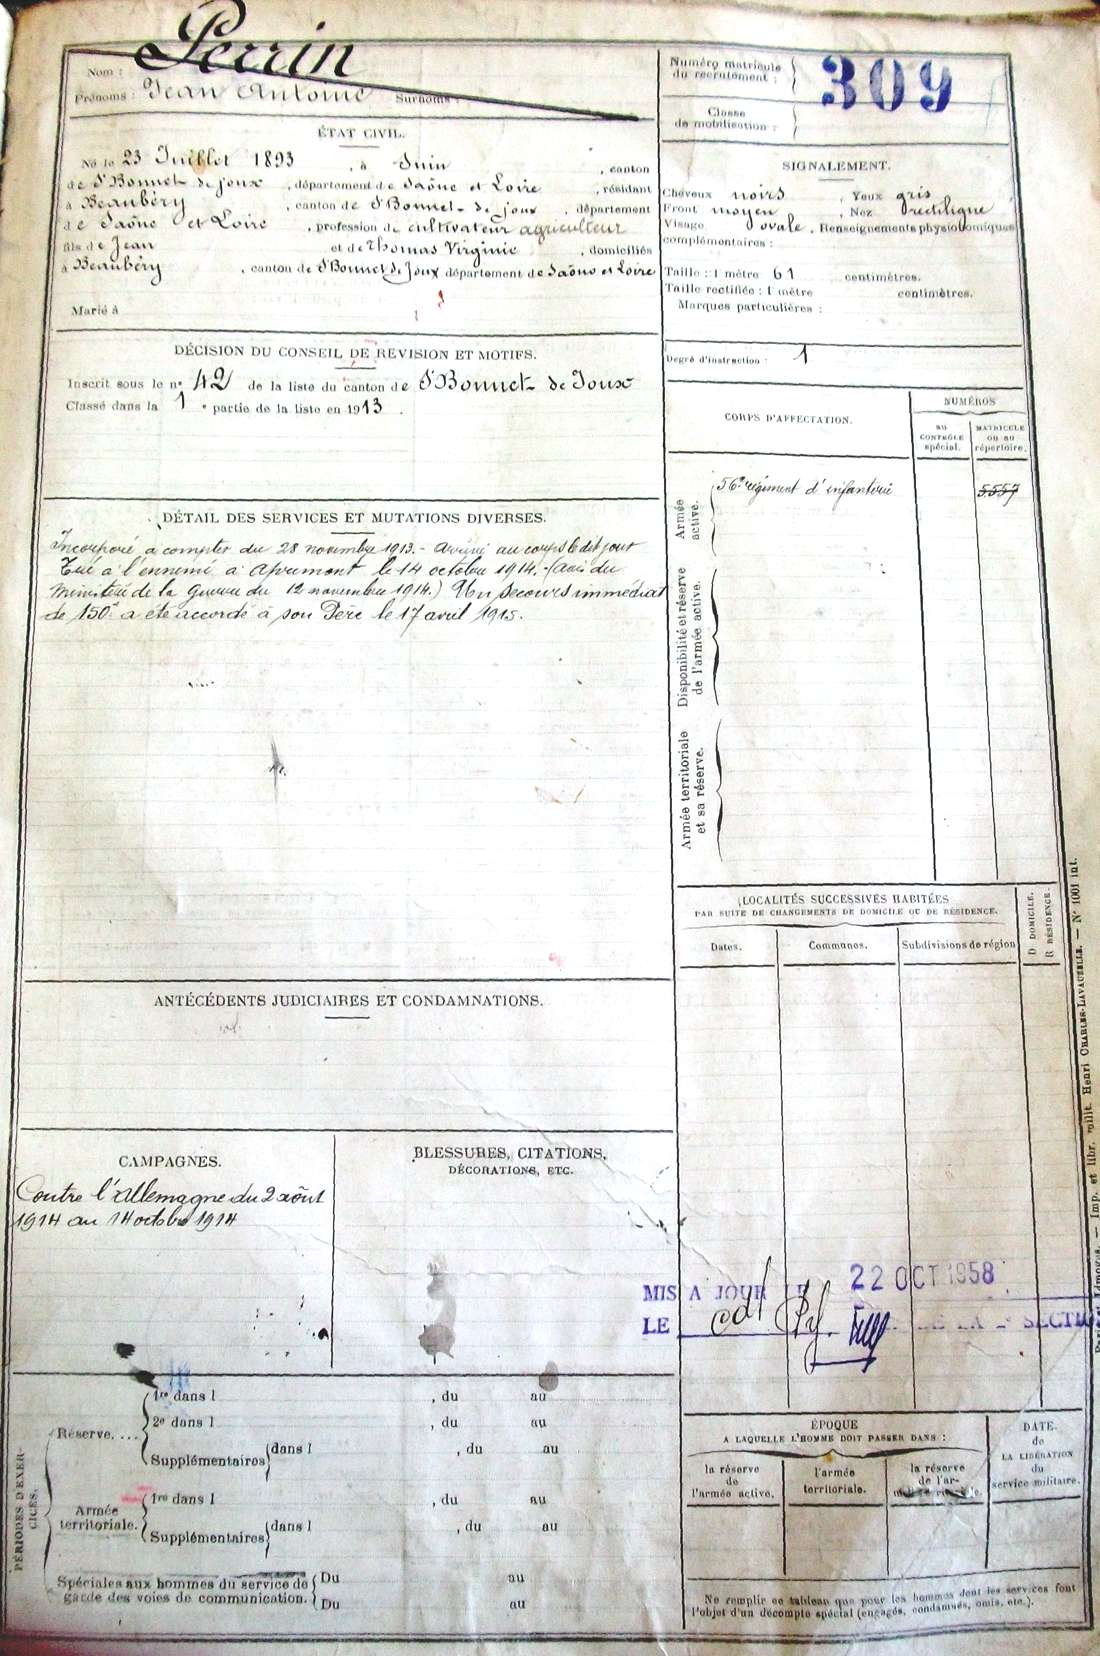 Nom : Perrin
Prénoms : Jean Antoine Surnoms :
Numéro matricule du recrutement : 309
Classe de mobilisation :
ÉTAT CIVIL.
Né le 23 Juillet 1893, à Suin, canton
de St Bonnet de joux, département de Saône et Loire, résidant
à Beaubéry, canton de St Bonnet de joux, département
de Saône et Loire, profession de cultivateur agriculteur
fils de Jean et de Thomas Virginie, domiciliés
à Beaubéry, canton de St Bonnet de Joux département de Saône et Loire
Marié à
SIGNALEMENT.
Cheveux noirs, Yeux gris
Front moyen, Nez rectiligne
Visage ovale, Renseignements physionomiques
complémentaires :
Taille : 1 mètre 61 centimètres.
Taille rectifiée : 1 mètre centimètres.
Marques particulières :
Degré d'instruction : 1
DÉCISION DU CONSEIL DE REVISION ET MOTIFS.
Inscrit sous le n° 42 de la liste du canton de St Bonnet de Joux
Classé dans la 1e partie de la liste en 1913.
CORPS D'AFFECTATION.
NUMÉROS
AU CONTRÔLE spécial.
MATRICULE OU AU répertoire.
Armée active.
56e régiment d'infanterie
5557
Disponibilité et réserve de l'armée active.
Armée territoriale et sa réserve.
DÉTAIL DES SERVICES ET MUTATIONS DIVERSES.
Incorporé à compter du 28 novembre 1913. - Arrivé au corps le dit jour
Tué à l'ennemi à Apremont le 14 octobre 1914. (avis du
Ministère de la Guerre du 12 novembre 1914.) Un secours immédiat
de 150f a été accordé à son Père le 17 avril 1915.
LOCALITÉS SUCCESSIVES HABITÉES
PAR SUITE DE CHANGEMENTS DE DOMICILE OU DE RÉSIDENCE.
Dates.
Communes.
Subdivisions de région
D DOMICILE.
R RÉSIDENCE.
ANTÉCÉDENTS JUDICIAIRES ET CONDAMNATIONS.
CAMPAGNES.
Contre l'Allemagne du 2 août
1914 au 14 octobre 1914
BLESSURES, CITATIONS,
DÉCORATIONS, ETC.
MIS A JOUR LE 22 OCT 1958
LE DE LA SECTION
PÉRIODES D'EXERCICES.
Réserve....
1re dans l , du au
2e dans l , du au
Supplémentaires dans l , du au
Armée territoriale.
1re dans l , du au
Supplémentaires dans l , du au
Spéciales aux hommes du service de
garde des voies de communication.
Du au
Du au
ÉPOQUE
A LAQUELLE L'HOMME DOIT PASSER DANS :
la réserve de l'armée active.
l'armée territoriale.
la réserve de l'ar-
DATE.
de
LA LIBÉRATION
du
service militaire.
Ne remplir ce tableau que pour les hommes dont les services font
l'objet d'un décompte spécial (engagés, condamnés, omis, etc.).
Imp. et libr. milit. Henri CHARLES-LAVAUZELLE. — N° 1001 int.